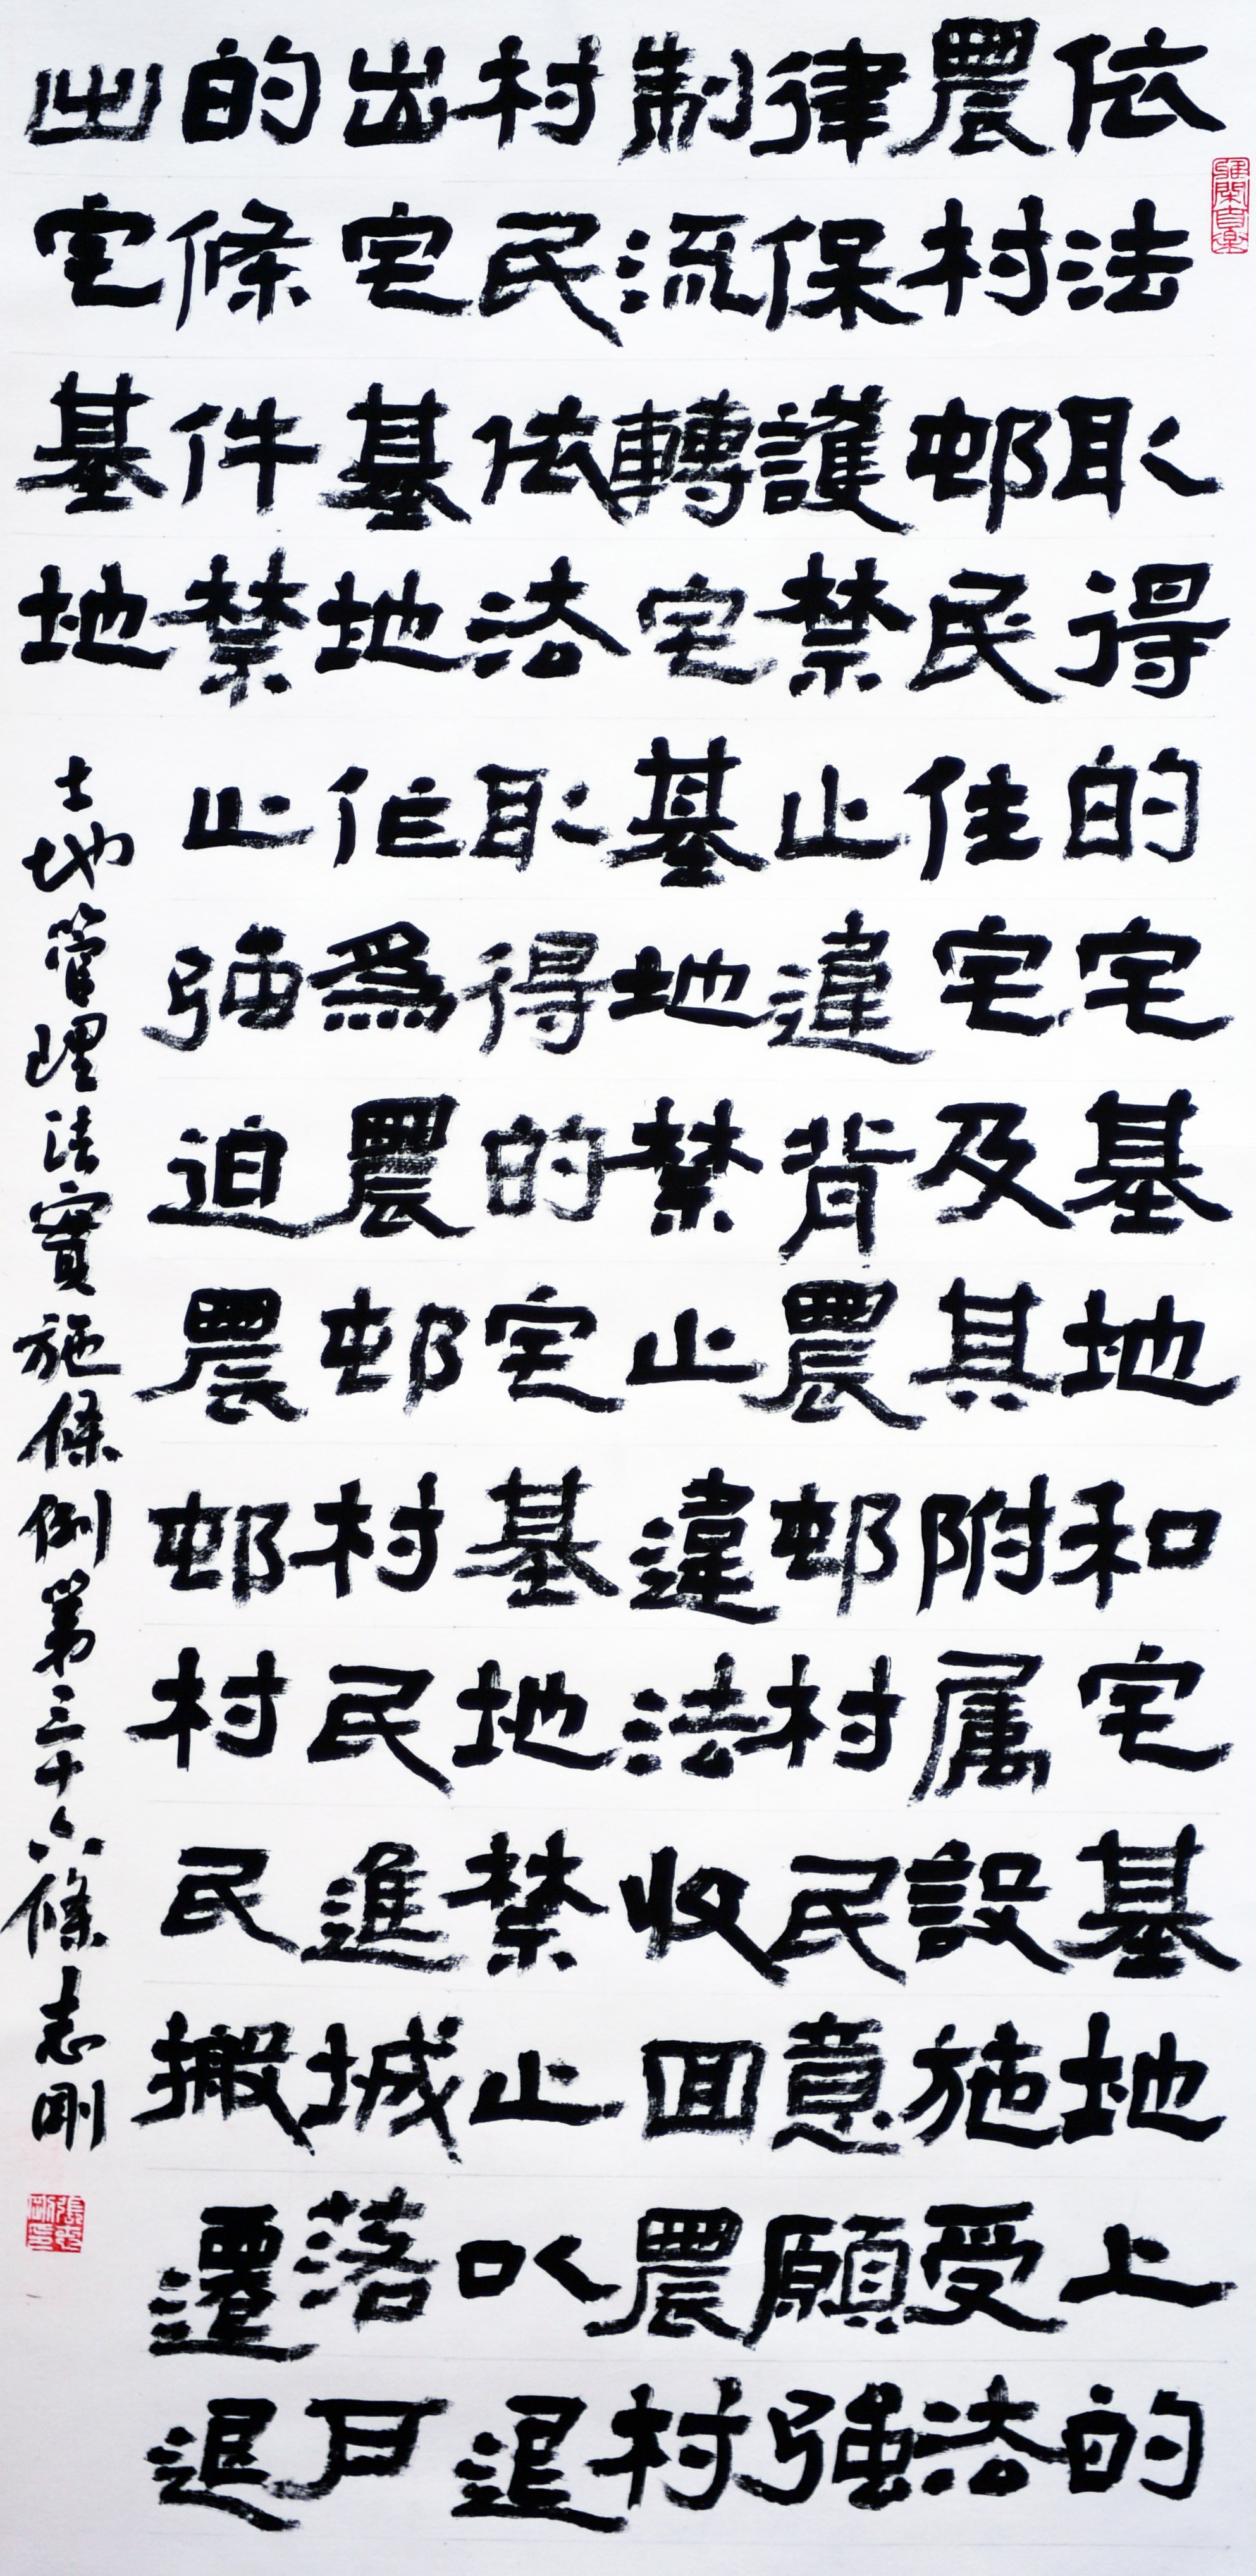 依法取得的宅基地和宅基地上的
農村邨民住宅及其附属設施受法
律保護禁止違背農邨村民意願強
制流轉宅基地禁止違法收回農村
村民依法取得的宅基地禁止以退
出宅基地作爲農邨村民進城落戶
的條件禁止強迫農邨村民搬遷退
出宅基地
土地管理法實施條例第三十六條志剛